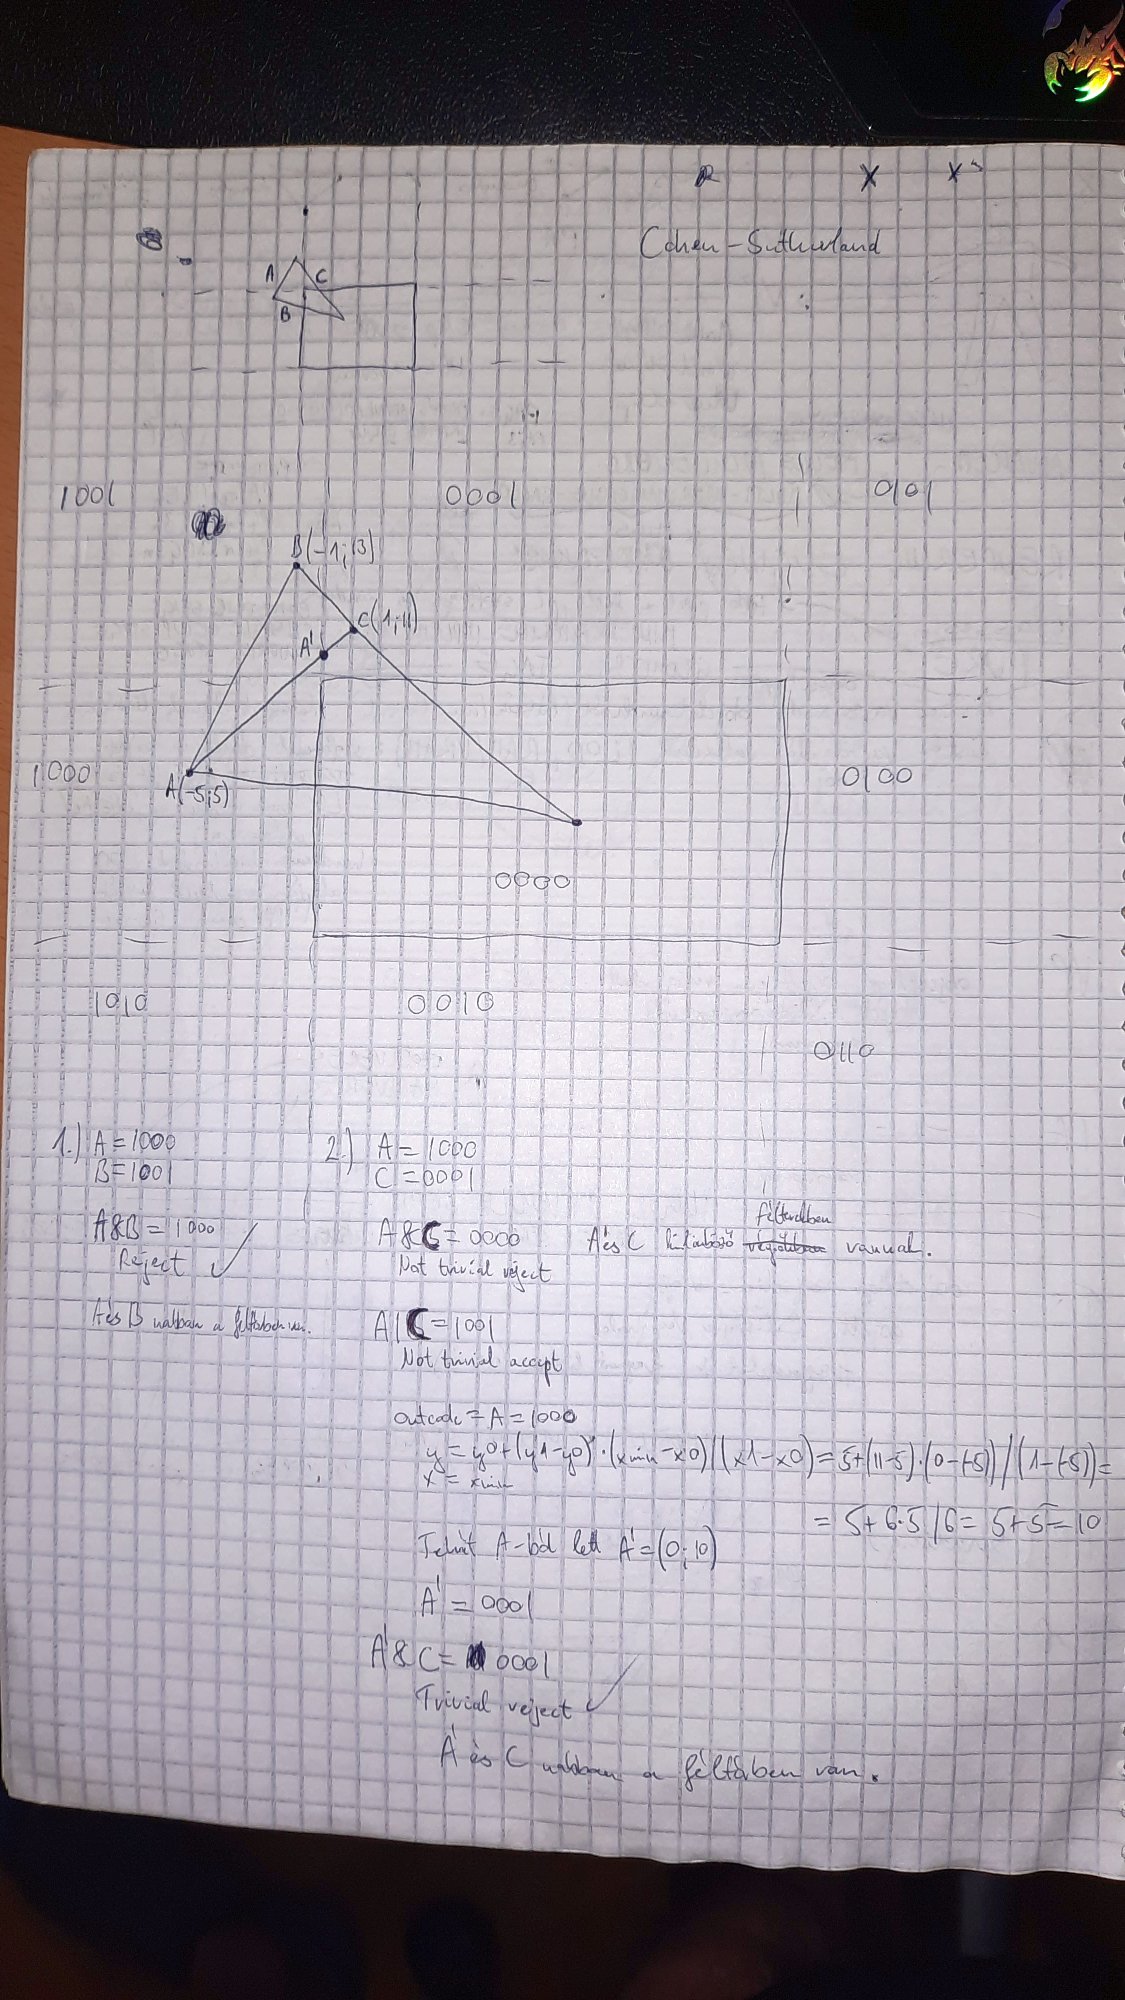 Cohen-Sutherland
A
C
B
1001
0001
0101
B(-1;13)
C(1;11)
A'
1000
A(-5;5)
0100
0000
1010
0010
0110
1.) A=1000
B=1001
A&B=1000
Reject ✓
A és B
a féltérben van.
2.) A=1000
C=0001
A&C=0000
Not trivial reject
A és C különböző féltérekben vannak.
A|C=1001
Not trivial accept
outcode=A=1000
y=y0+(y1-y0)·(xmin-x0)/(x1-x0)=5+(11-5)·(0-(-5))/(1-(-5))=
x=xmin
=5+6·5/6=5+5=10
Tehát A-ból lett A'=(0;10)
A'=0001
A'&C=0001
Trivial reject ✓
A' és C
a féltérben van.